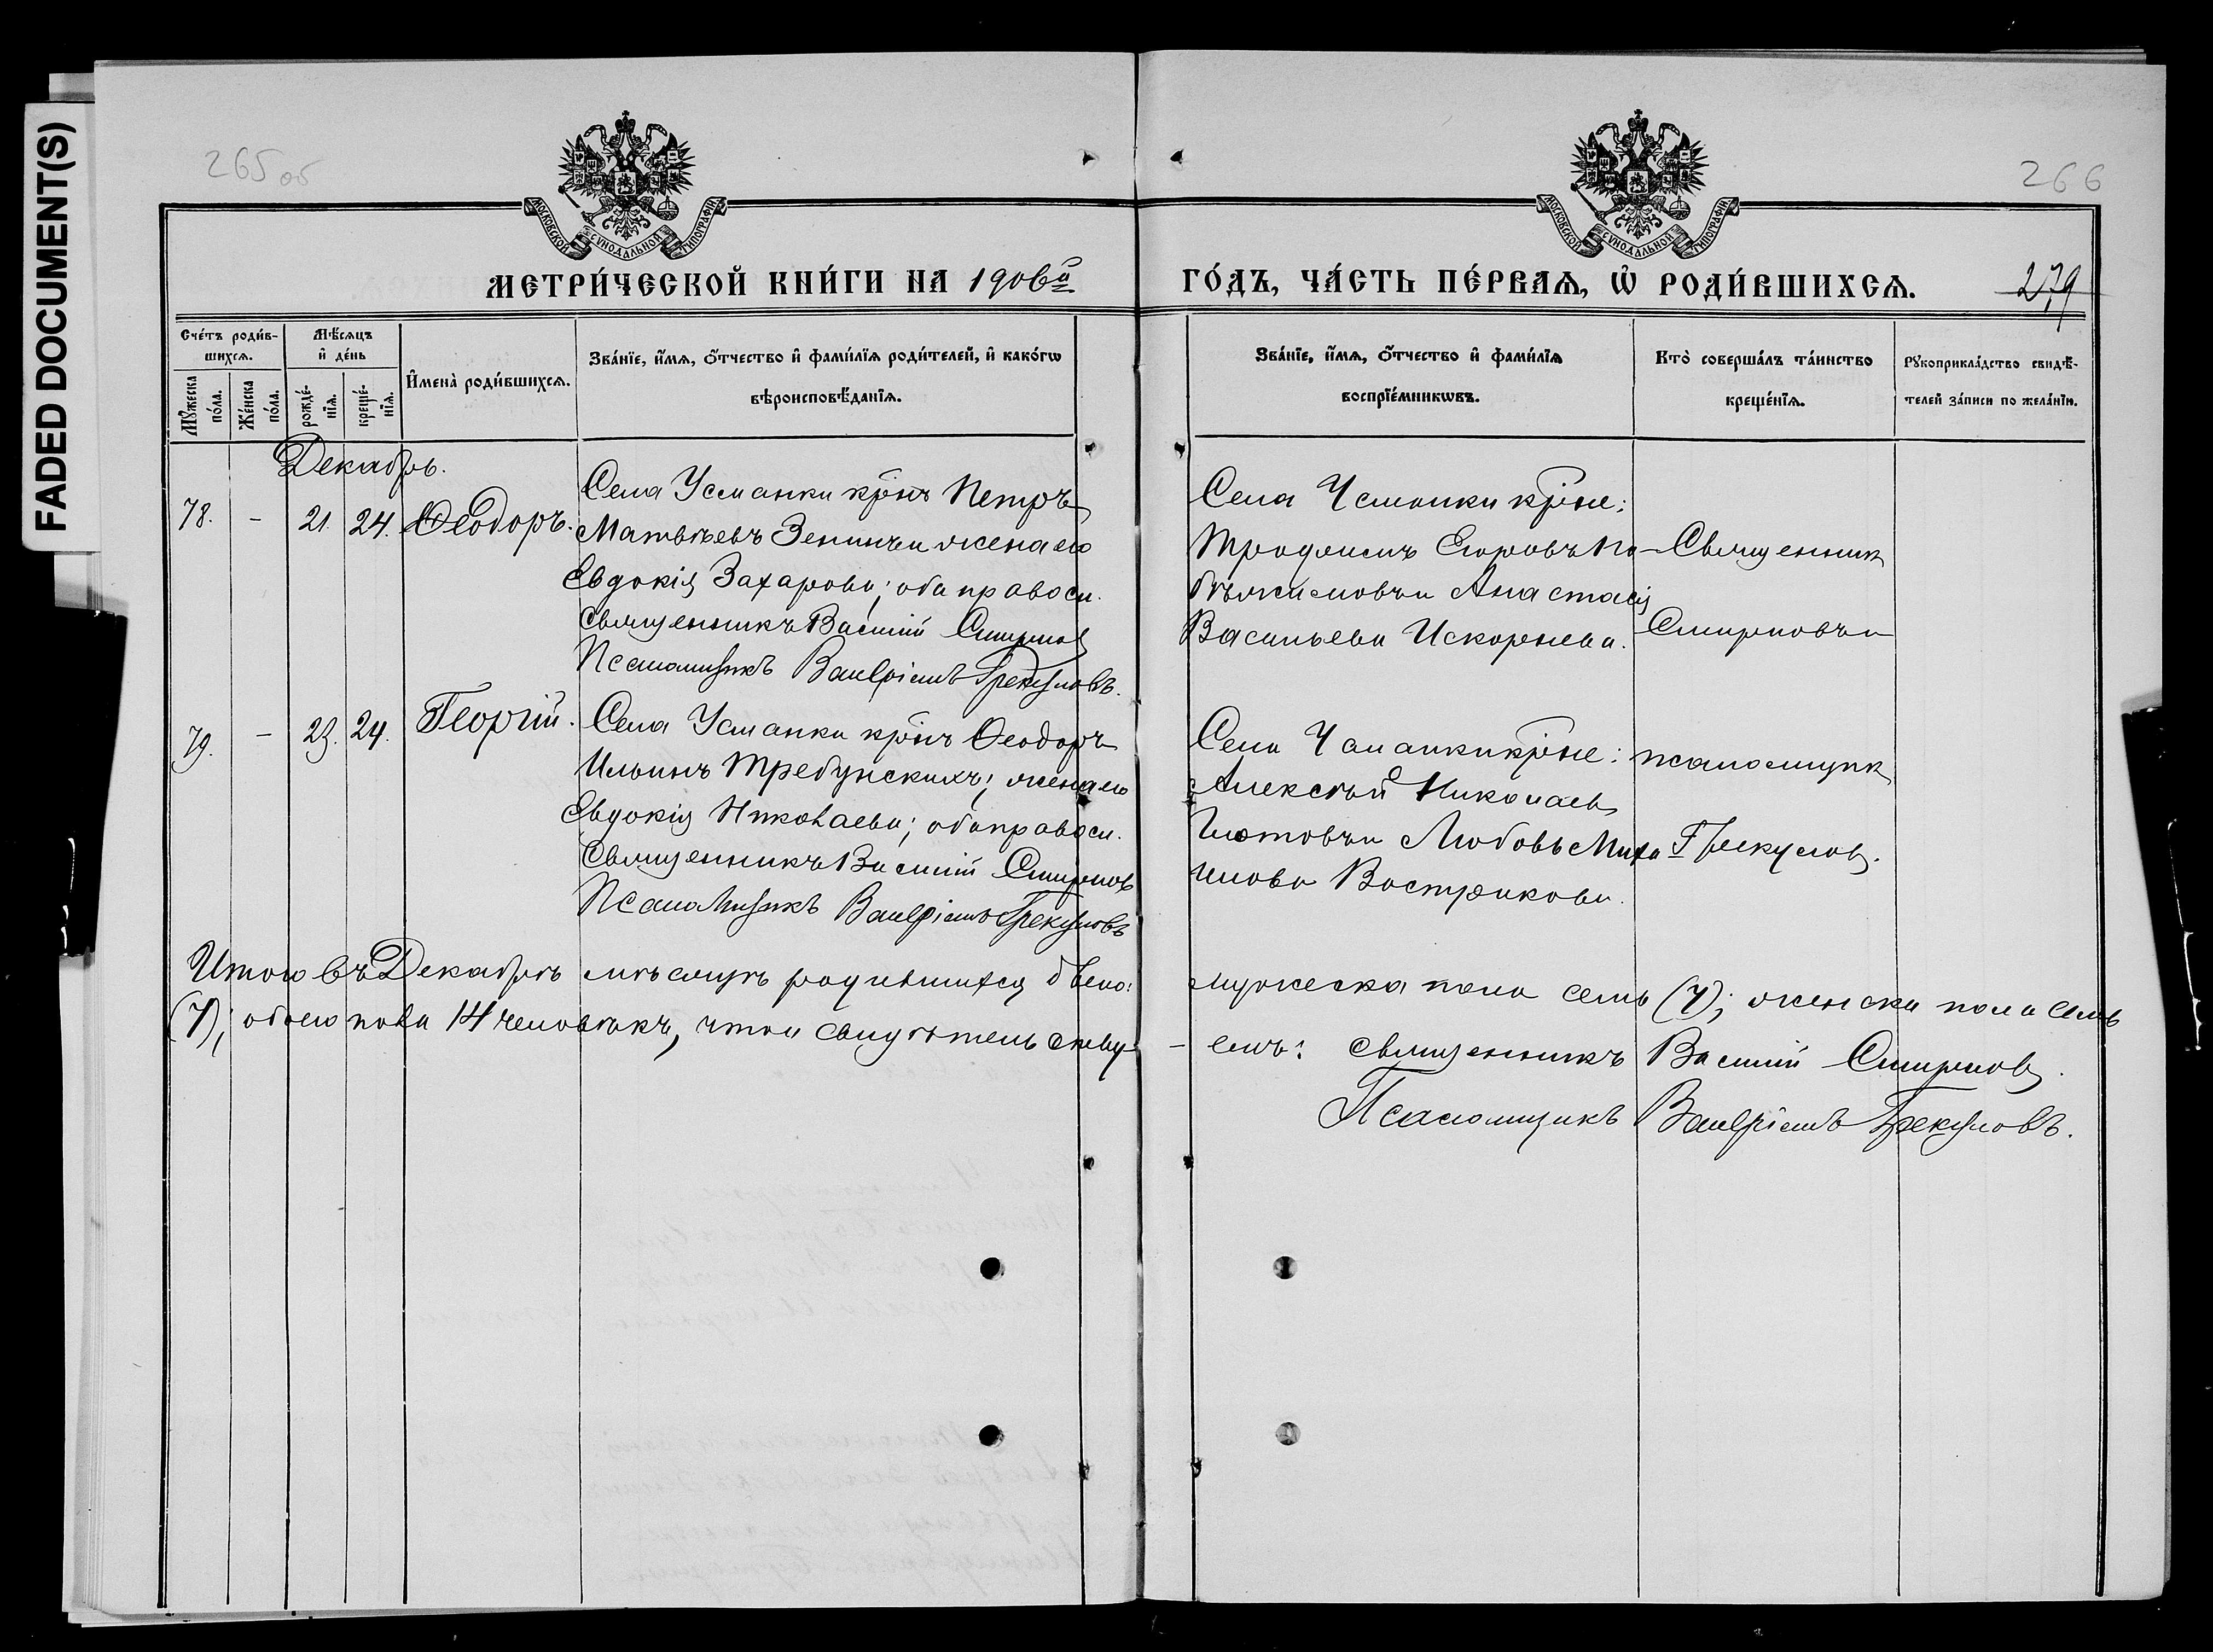 FADED DOCUMENT(S)
265 об
266
МОСКОВСКОЙ СѴНОДАЛЬНОЙ ТИПОГРАФІИ
МОСКОВСКОЙ СѴНОДАЛЬНОЙ ТИПОГРАФІИ
МЕТРИ́ЧЕСКОЙ КНИ́ГИ НА 1906й
ГО́ДЪ, ЧА́СТЬ ПЕ́РВАѦ, Ѡ҆ РОДИ́ВШИХСѦ.
279
Сче́тъ роди́в-
шихсѧ.
Мꙋжеска по́ла.
Же́нска по́ла.
Мѣ́сѧцъ
и҆ де́нь
рожде́-
нїѧ.
креще́-
нїѧ.
И҆мена̀ роди́вшихсѧ.
Зва́нїе, и҆́мѧ, ѻ҆́тчество и҆ фами́лїѧ роди́телей, и҆ како́гѡ
вѣроисповѣ́данїѧ.
Зва́нїе, и҆́мѧ, ѻ҆́тчество и҆ фами́лїѧ
воспрїе́мникѡвъ.
Кто̀ соверша́лъ та́инство
креще́нїѧ.
Рꙋкоприкла́дство свидѣ́-
телей за́писи по жела́нїю.
Декабрь.
78. - 21. 24. Ѳеодоръ.
Села Усманки крнъ Петръ
Матвѣевъ Зенинъ и жена его
Евдокія Захарова; оба правосл.
Священникъ Василій Смирнов
Псаломщикъ Валеріанъ Грекуловъ.
Села Усманки крне:
Трофимъ Егоровъ По-
бѣжимовъ и Анастасія
Васильева Искорнева.
Священник
Смирновъ и
79. - 23. 24. Георгій.
Села Усманки крнъ Ѳеодоръ
Ильинъ Требунскихъ; жена его
Евдокія Николаева; оба правосл.
Священникъ Василій Смирнов
Псаломщикъ Валеріанъ Грекуловъ
Села Усманки крне:
Алексѣй Николаев
Изотовъ и Любовь Миха
илова Вострикова.
псаломщик
Грекулов.
Итого въ Декабрѣ мѣсяцѣ родившихся было:
мужеска пола семь (7); женска пола семь
(7); обоего пола 14 человѣкъ, что и свидѣтельству-
-емъ: Священникъ Василій Смирнов.
Псаломщикъ Валеріанъ Грекуловъ.